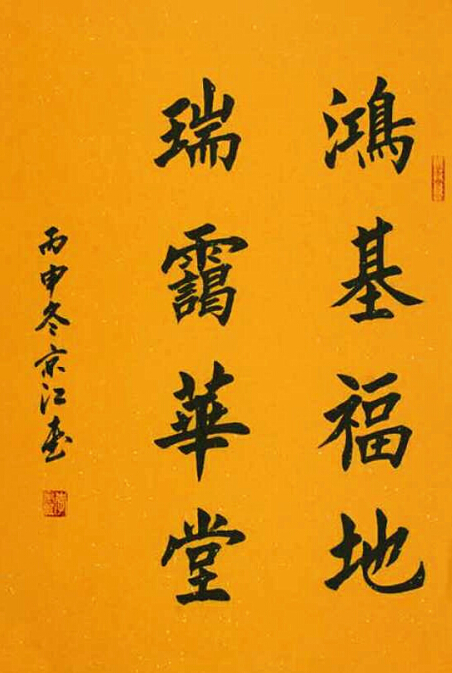 鴻基福地
瑞靄華堂
丙申冬京江書